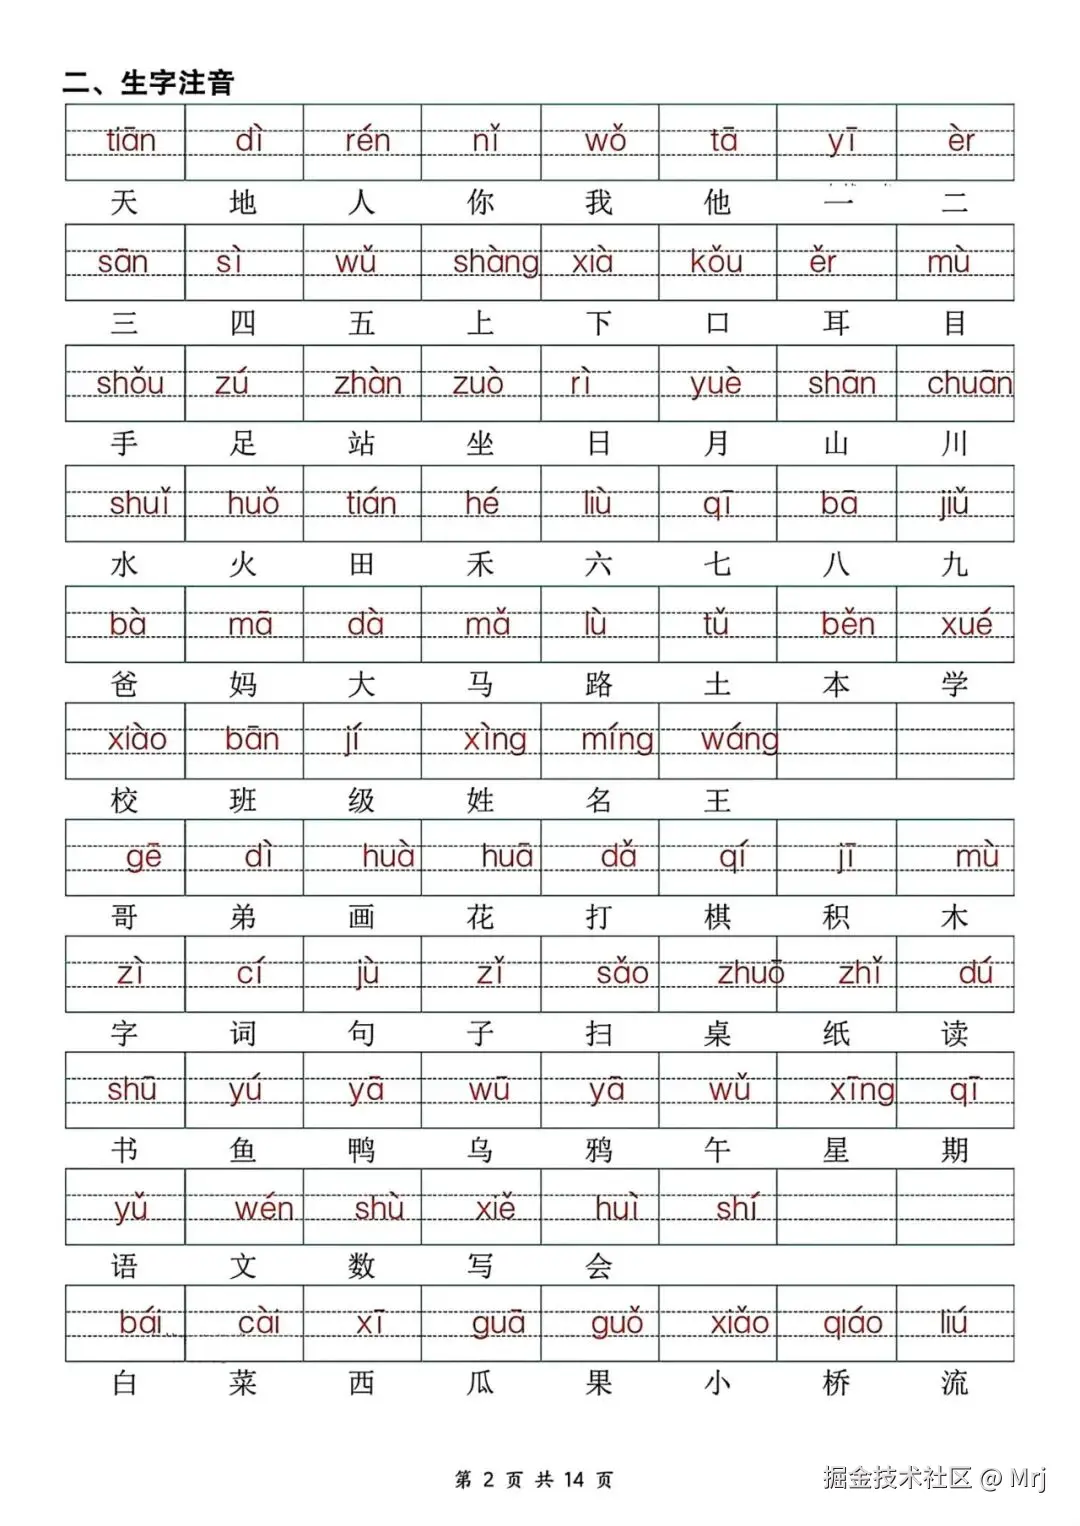 二、生字注音
tiān dì rén nǐ wǒ tā yī èr
天 地 人 你 我 他 一 二
sān sì wǔ shàng xià kǒu ěr mù
三 四 五 上 下 口 耳 目
shǒu zú zhàn zuò rì yuè shān chuān
手 足 站 坐 日 月 山 川
shuǐ huǒ tián hé liù qī bā jiǔ
水 火 田 禾 六 七 八 九
bà mā dà mǎ lù tǔ běn xué
爸 妈 大 马 路 土 本 学
xiào bān jí xìng míng wáng
校 班 级 姓 名 王
gē dì huà huā dǎ qí jī mù
哥 弟 画 花 打 棋 积 木
zì cí jù zǐ sǎo zhuō zhǐ dú
字 词 句 子 扫 桌 纸 读
shū yú yā wū yā wǔ xīng qī
书 鱼 鸭 乌 鸦 午 星 期
yǔ wén shù xiě huì shí
语 文 数 写 会
bái cài xī guā guǒ xiǎo qiáo liú
白 菜 西 瓜 果 小 桥 流
第 2 页 共 14 页
掘金技术社区 @ Mrj